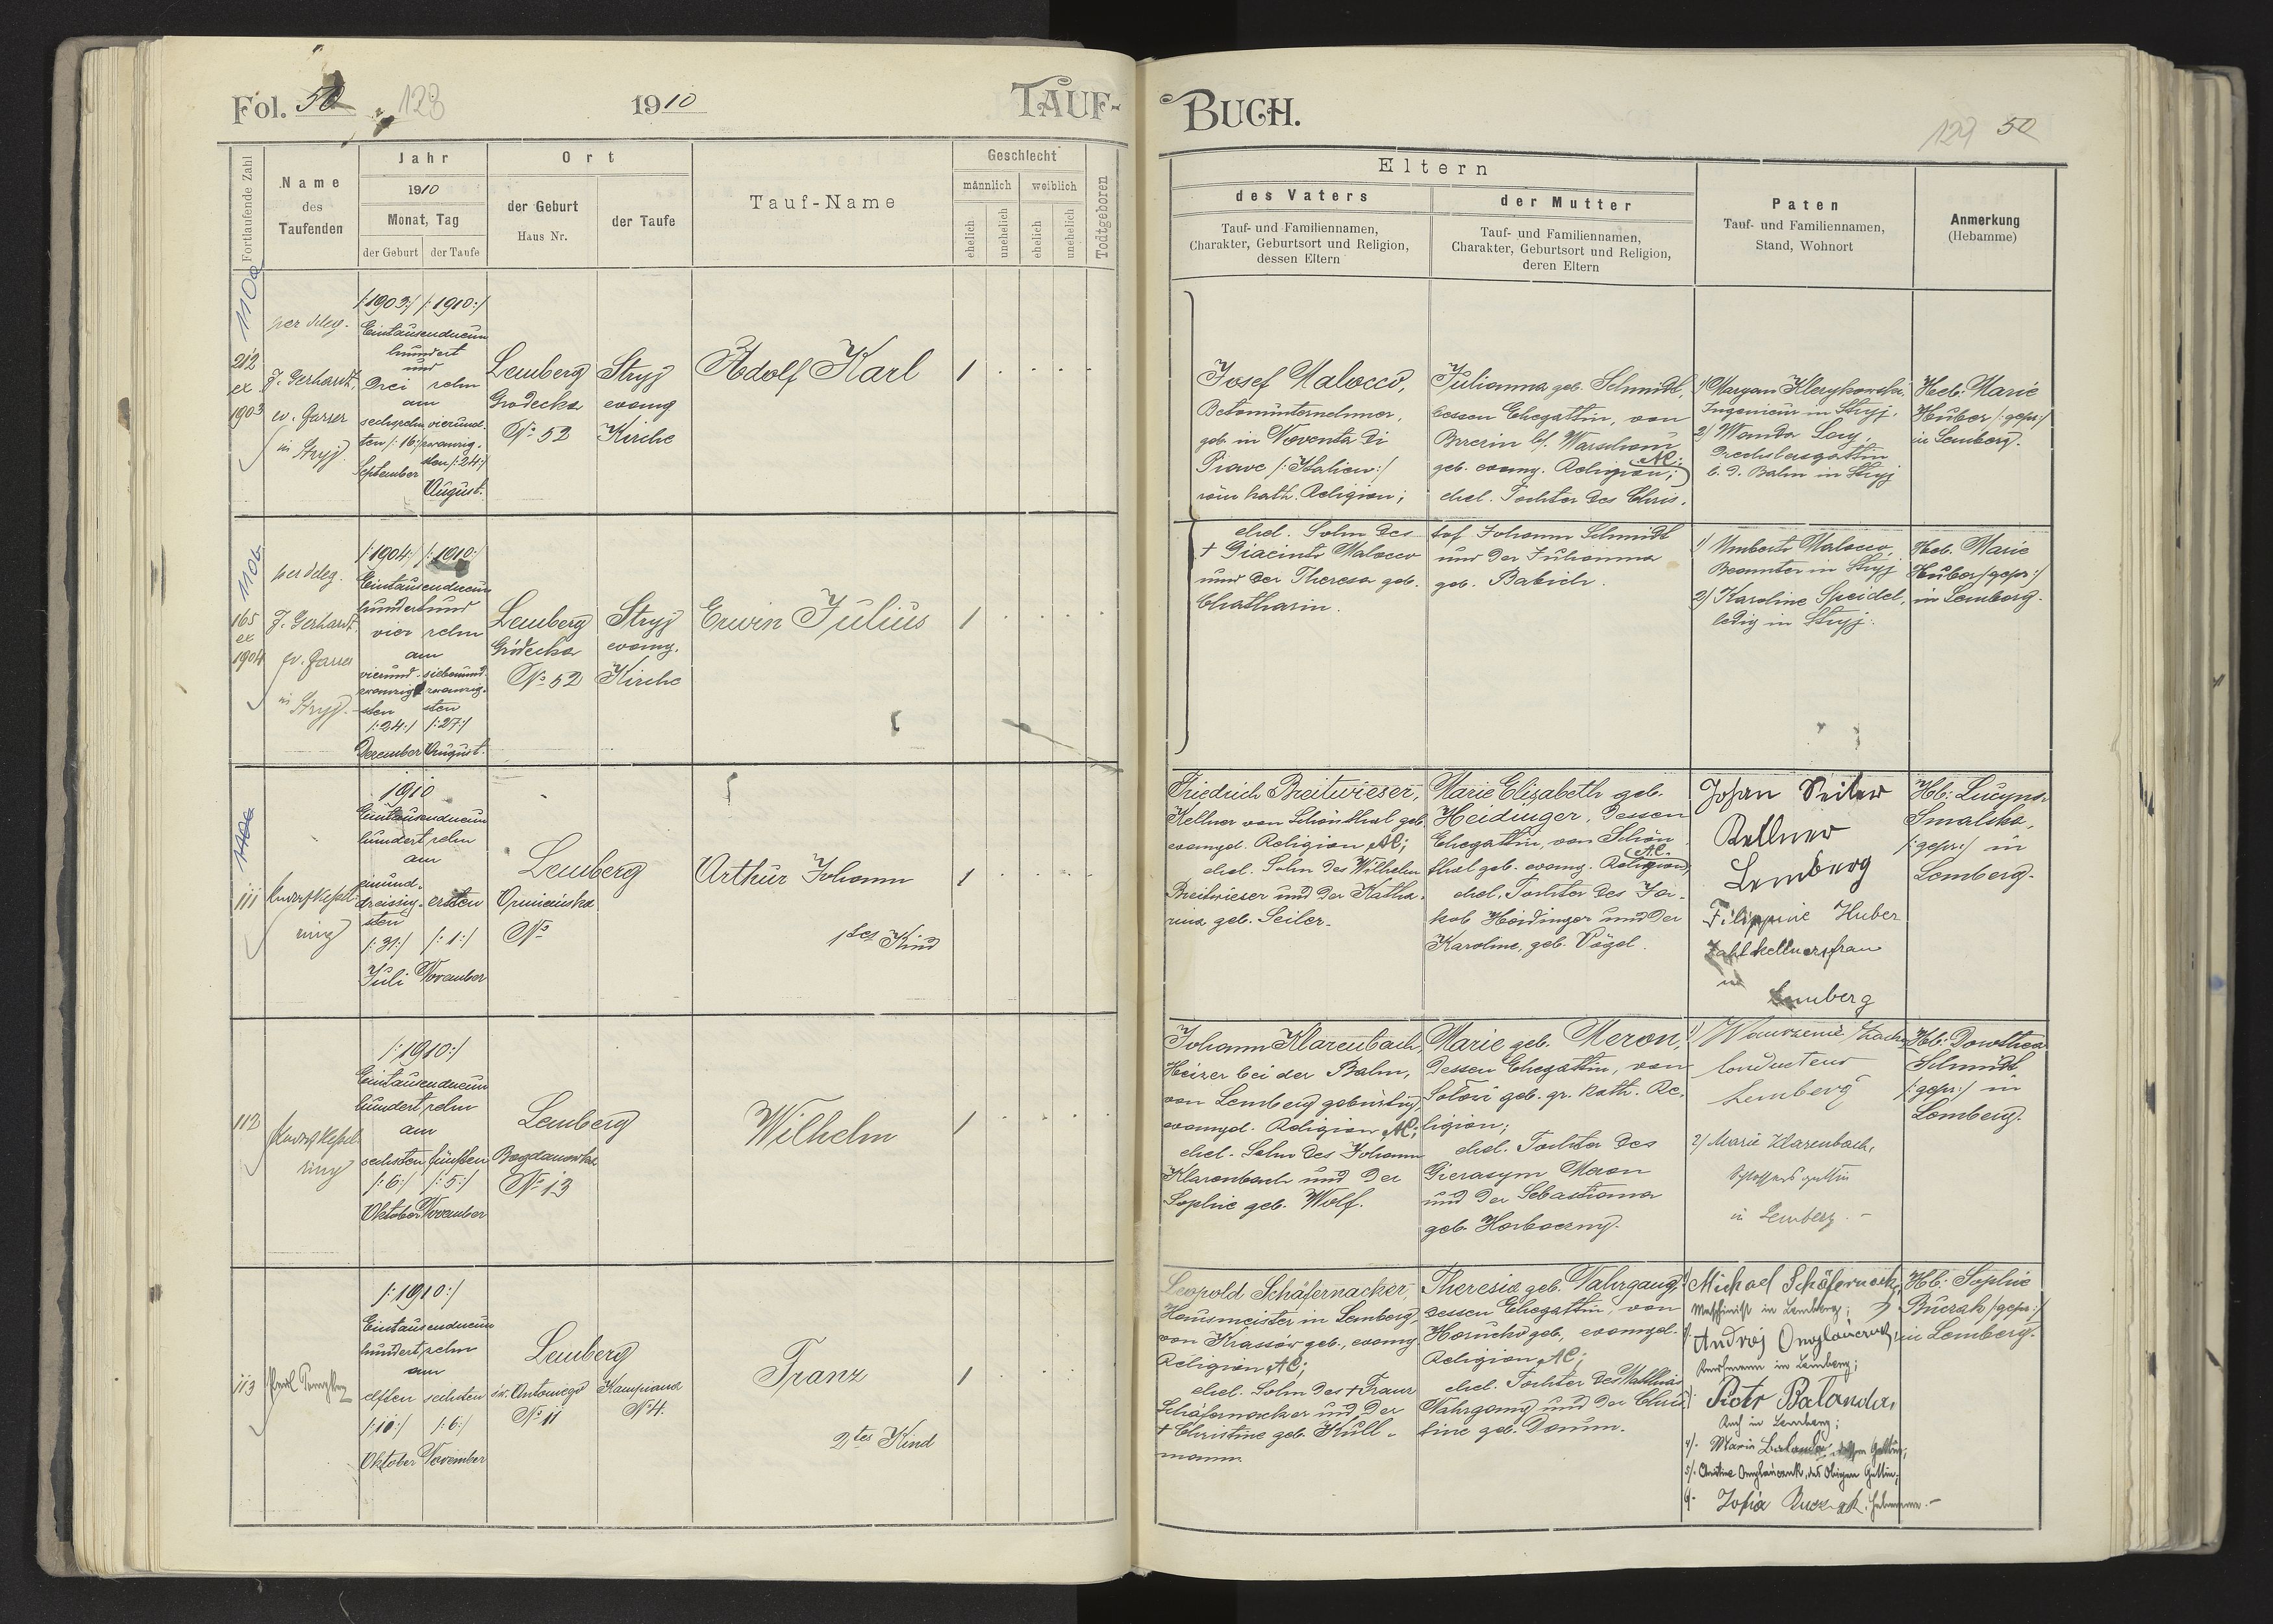 Fol. 50 128
1910
TAUF-
Fortlaufende Zahl
Name
des
Taufenden
Jahr
1910
Monat, Tag
der Geburt
der Taufe
Ort
der Geburt
Haus Nr.
der Taufe
Tauf-Name
Geschlecht
männlich
weiblich
ehelich
unehelich
ehelich
unehelich
Todtgeboren
110a
212
ex
1903
per deleg.
J. Gerhardt,
ev. Pfarrer
in Stryj.
/:1903:/ /:1910:/
Eintausendneun
hundert
und
Drei zehn
am
sechszehn vierund-
ten /:16:/ zwanzig-
sten /:24:/
September
August.
Lemberg
Grodecka
No 52
Stryj
evang
Kirche
Adolf Karl
1
110b
165
ex
1904
per deleg.
J. Gerhardt
ev. Pfarrer
in Stryj.
/:1904:/ /:1910:/
Eintausendneun
hundert und
vier zehn
am
vierund- siebenund-
zwanzig- zwanzig-
sten sten
/:24:/ /:27:/
Dezember August.
Lemberg
Gródecka
No 52
Stryj
evang.
Kirche
Erwin Julius
1
111
1910
Eintausendneun
hundert zehn
am
einund-
dreissig- ersten
sten
/:31:/ /:1:/
Juli November
Lemberg
No
Arthur Johann
1tes Kind
1
112
/:1910:/
Eintausendneun
hundert zehn
am
sechsten fünften
/:6:/ /:5:/
Oktober November
Lemberg
Bogdanowka
No 13
Wilhelm
1
113
/:1910:/
Eintausendneun
hundert zehn
am
elften sechsten
/:6:/
Oktober November
Lemberg
św. Antoniego
No 11
Kampiana
No 4.
Franz
2tes Kind
1
BUCH.
129 50
Eltern
des Vaters
Tauf- und Familiennamen,
Charakter, Geburtsort und Religion,
dessen Eltern
der Mutter
Tauf- und Familiennamen,
Charakter, Geburtsort und Religion,
deren Eltern
Paten
Tauf- und Familiennamen,
Stand, Wohnort
Anmerkung
(Hebamme)
Josef Malocco,
Betonunternehmer,
geb. in Noventa di
Piave /:Italien:/
röm kath. Religion;
Julianna geb. Schmidt,
dessen Ehegattin, von
b/. Warschau
geb. evang. Religion AC;
ehel. Tochter des Chris-
1/ Maryan
Ingenieur in Stryj.
2/ Wanda
b. d. Bahn in Stryj
Heb: Marie
Huber /:gepr:/
in Lemberg.
ehel. Sohn des
+ Giacinto Malocco
und der Theresa geb.
Chatharin.
tof Johann Schmidt
und der Julianna
geb. Babich.
1/ Umberto Malocco,
Beamter in Stryj
2/ Karoline Speidel,
ledig in Stryj.
Heb. Marie
Huber /gepr:/
in Lemberg.
Friedrich Breitwieser,
Kellner von Schönthal geb.
evangel. Religion AC;
ehel. Sohn des Wilhelm
Breitwieser und der Katha-
rina geb. Seiler.
Marie Elisabeth geb.
Heidinger, dessen
Ehegattin, von Schön-
thal geb. evang. Religion AC.
ehel. Tochter des Ja-
kob Heidinger und der
Karoline, geb. Vögel.
Johan Seiler
Kellner
Lemberg
Filippine Huber
Zahlkellnersfrau
in
Lemberg
Hb: Lucyna
Smalska,
/:gepr:/ in
Lemberg.
Johann Klarenbach,
Heizer bei der Bahn,
von Lemberg gebürtig,
evangel. Religion AC;
ehel. Sohn des Johann
Klarenbach und der
Sophie geb. Wolf.
Marie geb. Meron,
dessen Ehegattin, von
geb. gr. kath. Re-
ligion;
ehel. Tochter des
Gierasym Meron
und der Sebastiana
geb. Horbaczny.
1/ Wawrzeniec
Conducteur
Lemberg
2/ Marie Klarenbach,
Schlossersgattin
in Lemberg. -
Hb: Dorothea
Schmidt
/:gepr:/ in
Lemberg.
Leopold Schäfernacker,
Hausmeister in Lemberg,
von Krassów geb., evang.
Religion AC;
ehel. Sohn des + Franz
Schäfernacker und der
+ Christine geb. Kull-
mann.
Theresia geb. Nahrgang,
dessen Ehegattin, von
geb., evangel.
Religion AC;
ehel. Tochter des Mathias
Nahrgang und der Chris-
tine geb. Donum.
Michael Schäfernacker,
Maschinist in Lemberg;
in Lemberg;
Piotr Balanda,
Koch in Lemberg;
4/. Maria Balanda, dessen Gattin;
Zofia
Hb: Sophie
Buczak /gepr:/
in Lemberg.